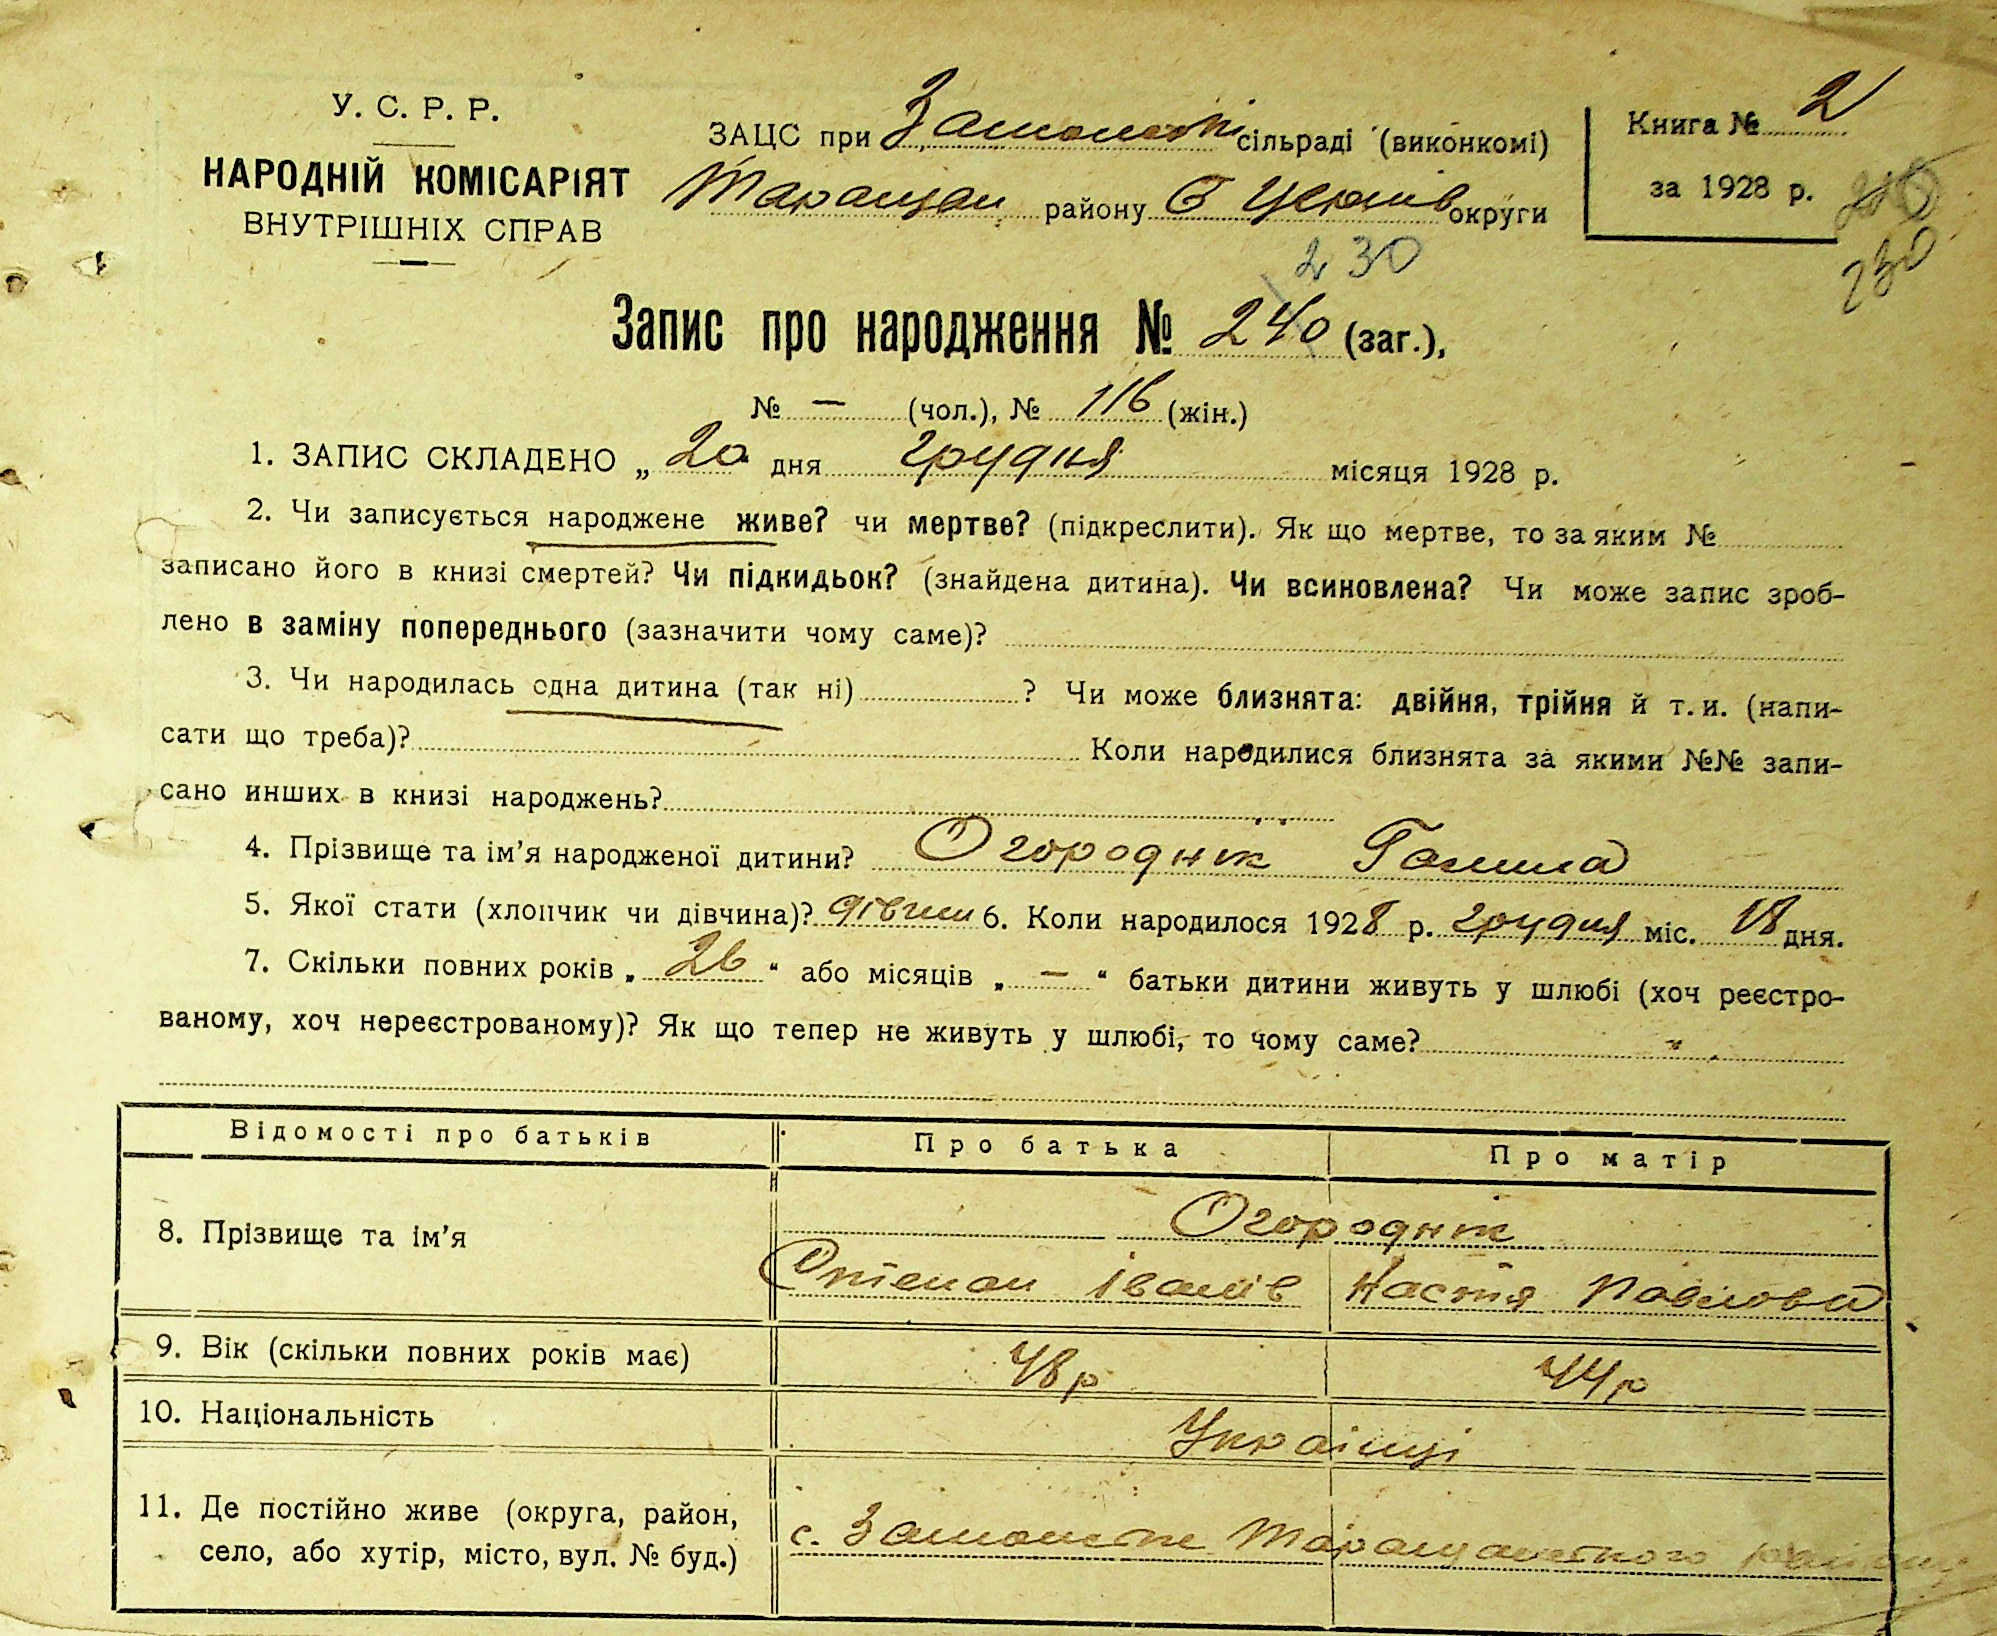 У. С. Р. Р.
НАРОДНІЙ КОМІСАРІЯТ
ВНУТРІШНІХ СПРАВ
ЗАЦС при сільраді (виконкомі)
Таращан району Б Церків округи
Книга № 2
за 1928 р.
230
230
Запис про народження № 240 (заг.),
№ — (чол.), № 116 (жін.)
1. ЗАПИС СКЛАДЕНО „ 20 “ дня грудня місяця 1928 р.
2. Чи записується народжене живе? чи мертве? (підкреслити). Як що мертве, то за яким №
записано його в книзі смертей? Чи підкидьок? (знайдена дитина). Чи всиновлена? Чи може запис зроб-
лено в заміну попереднього (зазначити чому саме)?
3. Чи народилась одна дитина (так ні) ? Чи може близнята: двійня, трійня й т. и. (напи-
сати що треба)? Коли народилися близнята за якими №№ запи-
сано инших в книзі народжень?
4. Прізвище та ім’я народженої дитини? Огороднік Галина
5. Якої стати (хлопчик чи дівчина)? дівчин 6. Коли народилося 1928 р. грудня міс. 18 дня.
7. Скільки повних років „ 26 “ або місяців „ — “ батьки дитини живуть у шлюбі (хоч реєстро-
ваному, хоч нереєстрованому)? Як що тепер не живуть у шлюбі, то чому саме?
Відомості про батьків Про батька Про матір
8. Прізвище та ім’я Огороднік
Степан Іванів Настя Павлова
9. Вік (скільки повних років має) 48 р 44 р
10. Національність Українці
11. Де постійно живе (округа, район,
село, або хутір, місто, вул. № буд.)
с. Таращанського району